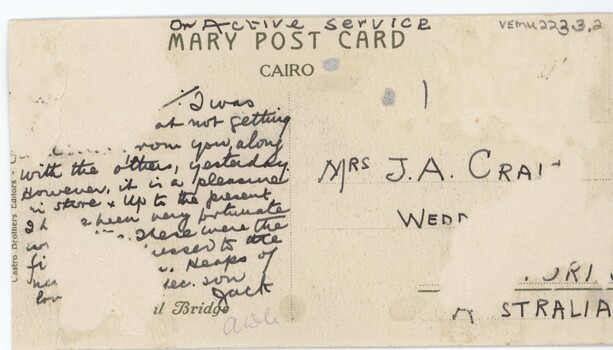 On Active Service
VEMU 223 3.2
MARY POST CARD
CAIRO
I was
at not getting
rom you, along
with the others, yesterday.
However, it is a pleasure
in store & Up to the present
I h e been very fortunate
There were the
essed to the
Heaps of
son
lov Jack
Castro Brothers Editors
il Bridge
MRS J. A. CRAI
WEDD
ORI
STRALIA